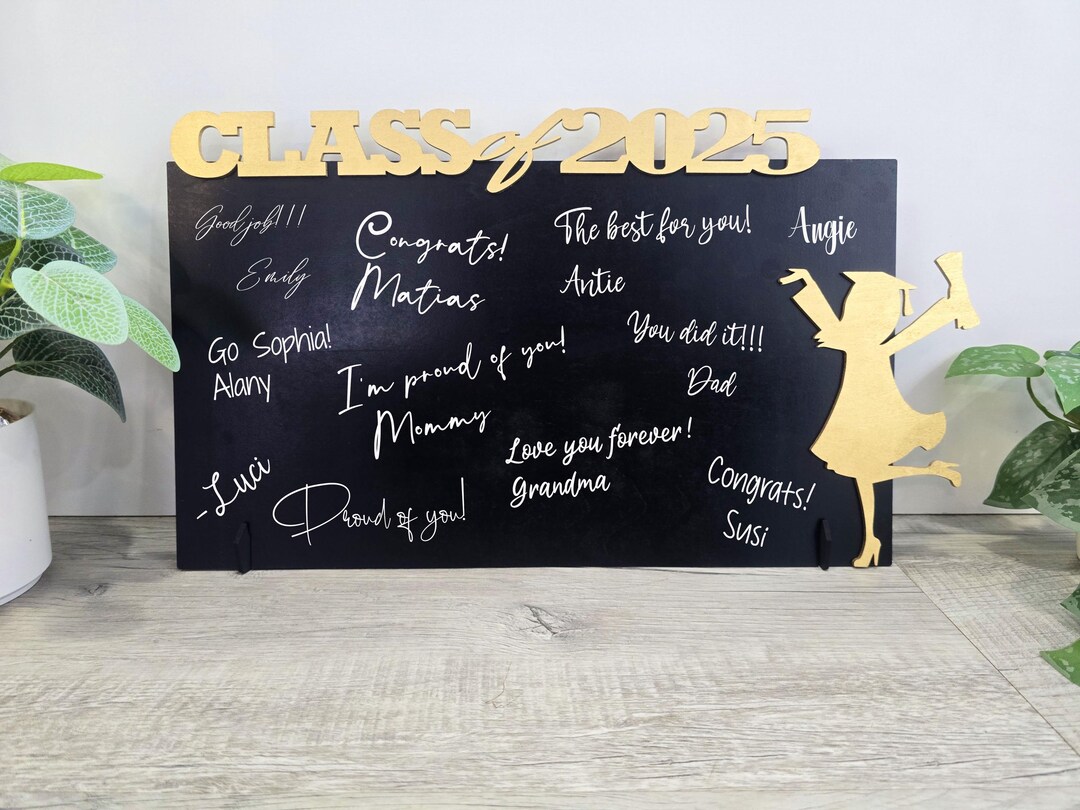 CLASS of 2025
Good job!!!
Emily
Congrats!
Matias
The best for you!
Antie
Angie
Go Sophia!
Alany
I'm proud of you!
Mommy
You did it!!!
Dad
-Luci
Proud of you!
Love you forever!
Grandma
Congrats!
Susi